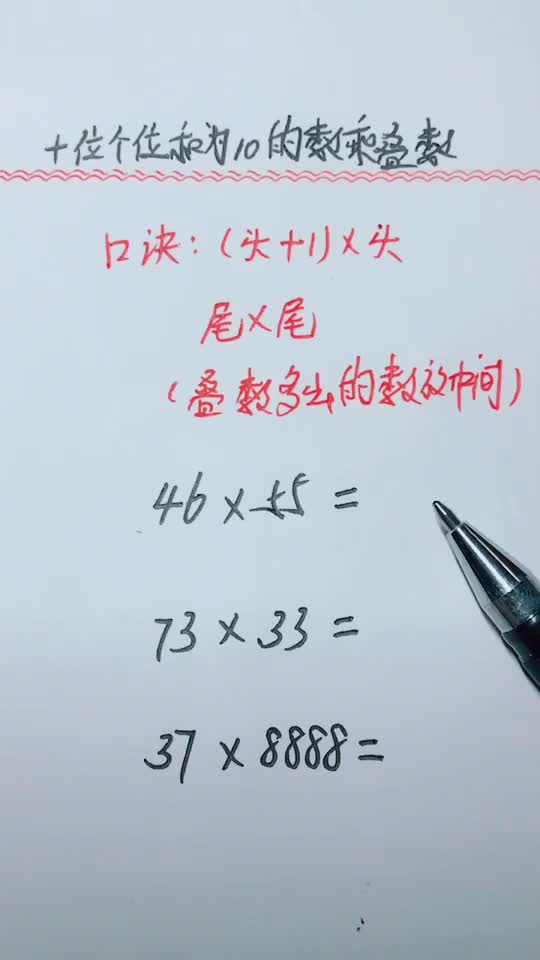 十位个位和为10的数乘叠数
口诀:(头+1)×头
尾×尾
(叠数多出的数放中间)
46×55=
73×33=
37×8888=